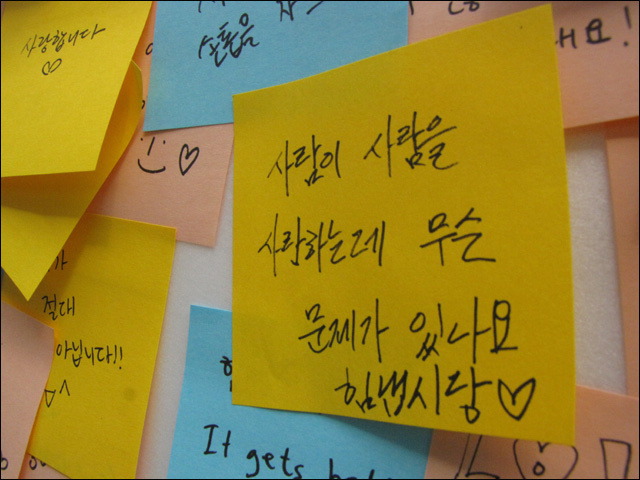 사랑합니다♡
슬픔을
요!
사람이 사람을
사랑하는데 무슨
문제가 있나요
힘냅시당♡
가
절대
아닙니다!!
It gets